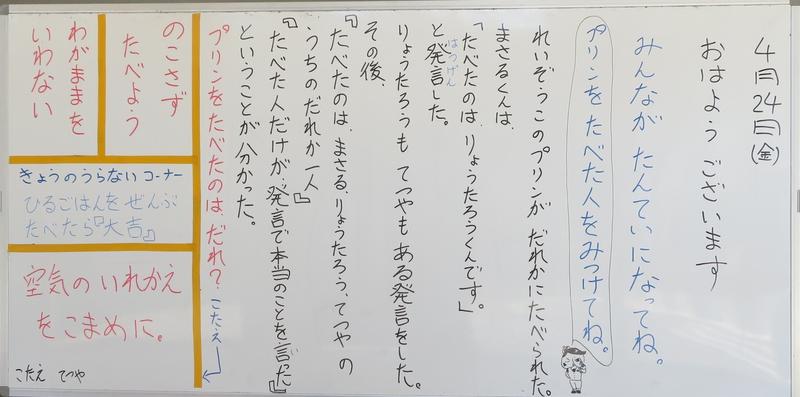 4月24日(金)
おはよう ございます
みんなが たんていになってね。
プリンを たべた人をみつけてね。
れいぞうこのプリンが だれかにたべられた。
まさるくんは、
「たべたのは、りょうたろうくんです。」
と発言した。
はつげん
りょうたろうも てつやも ある発言をした。
その後、
『たべたのは、まさる、りょうたろう、てつや の
うちのだれか一人』
『たべた人だけが、発言で本当のことを言った』
ということが 分かった。
プリンをたべたのは、だれ？ こたえ
のこさず
たべよう
わがままを
いわない
きょうのうらない コーナー
ひるごはんを ぜんぶ
たべたら『大吉』
空気の いれかえ
をこまめに。
こたえ てつや